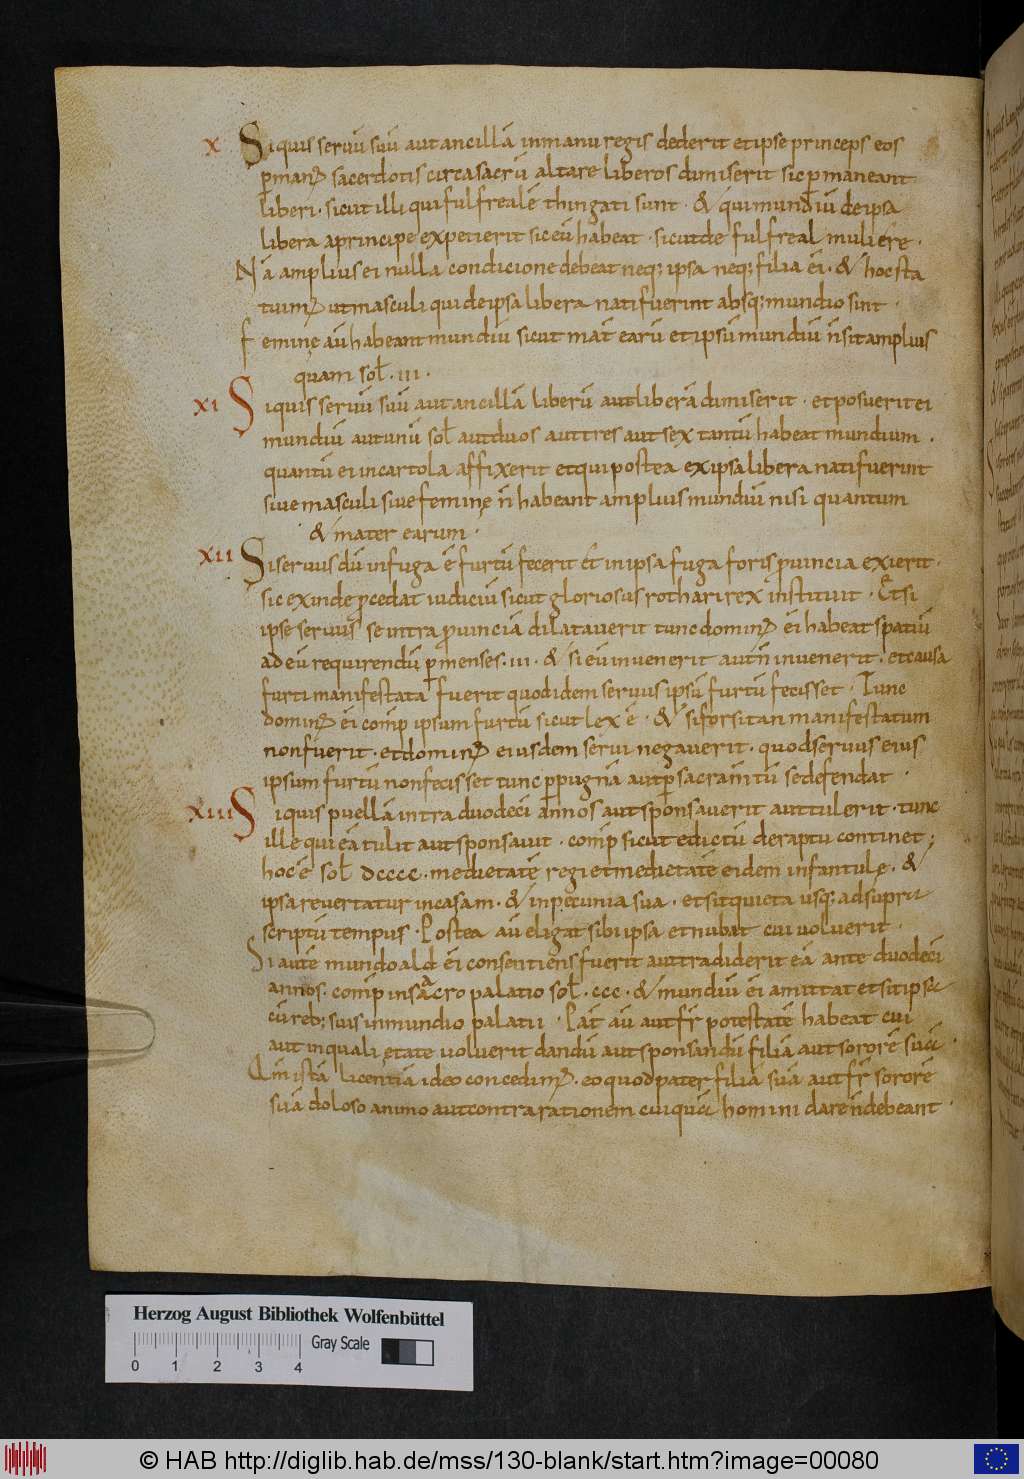 X Siquis servū suū aut ancillā inmanu regis dederit et ipse princeps eos
p̄ manꝰ sacerdotis circa sacrū altare liberos dimiserit sic p̄maneant
liberi · sicut illi qui fulfreale thingati sunt · & qui mundiū de ipsa
libera a principe expetierit sic eū habeat · sicut de fulfreal muliere ·
Nā amplius ei nulla condicione debeat neq; ipsa neq; filia ei · & hoc sta
tuimꝰ ut masculi qui de ipsa libera nati fuerint absq; mundio sint ·
Feminę aū habeant mundiū sicut mat̄ earū et ipsū mundiū n̄ sit amplius
quam sol̄ · III ·
XI Siquis servū suū aut ancillā liberū aut liberā dimiserit · et posuerit ei
mundiū aut unū sol̄ aut duos aut tres aut sex tantū habeat mundium ·
quantū ei in cartola affixerit et qui postea ex ipsa libera nati fuerint
sive masculi sive feminę n̄ habeant amplius mundiū nisi quantum
& mater earum ·
XII Si servus dū in fuga ē furtū fecerit et in ipsa fuga foris p̄vincia exierit ·
sic exinde p̄cedat iudiciū sicut gloriosus rothari rex instituit · Et si
ipse servus se intra p̄vinciā dilataverit tunc dominꝰ ei habeat spatiū
ad eū requirendū p̄ menses · III · & si eū invenerit aut n̄ invenerit · et causa
furti manifestata fuerit quod idem servus ipsū furtū fecisset · Tunc
dominꝰ ei comp̄ ipsum furtū sicut lex ē · & si forsitan manifestatum
non fuerit · et dominꝰ eiusdem servi negaverit · quod servus eius
ipsum furtū non fecisset tunc p̄ pugnā aut p̄ sacramtū se defendat ·
XIII Siquis puellā intra duodeci annos aut sponsaverit aut tulerit · tunc
ille qui eā tulit aut sponsavit · comp̄ sicut edictū de raptu continet ;
hoc ē sol̄ dcccc · medietatē regi et medietatē eidem infantulę · &
ipsa revertatur in casam · & in pecunia sua · et sit quieta usq; ad supra
scriptū tempus · Postea aū eligat sibi ipsa et nubat cui voluerit ·
Si autē mundoald ei consentiens fuerit aut tradiderit eā ante duodeci
annos · comp̄ in sacro palatio sol̄ · ccc · & mundiū ei amittat et sit ipsa
cū reb; suis in mundio palatii · Pat̄ aū aut fr̄ potestatē habeat cui
aut in quali etate voluerit dandū aut sponsandū filiā aut sororē suā ·
Qm̄ istā licentiā ideo concedimꝰ · eo quod pater filiā suā aut fr̄ sororē
suā doloso animo aut contra rationem cuiquā homini dare n̄ debeant ·
Herzog August Bibliothek Wolfenbüttel
Gray Scale
0 1 2 3 4
© HAB http://diglib.hab.de/mss/130-blank/start.htm?image=00080